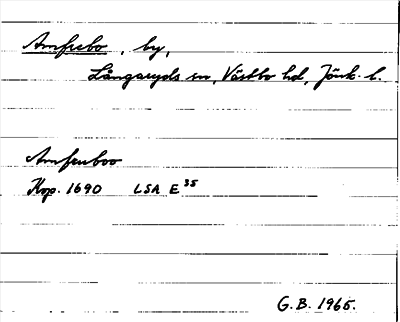 Amfrebo, by,
Långaryds sn, Västbo hd, Jönk. l.
Amfruboo
Kop. 1690 LSA E 35
G.B. 1965.